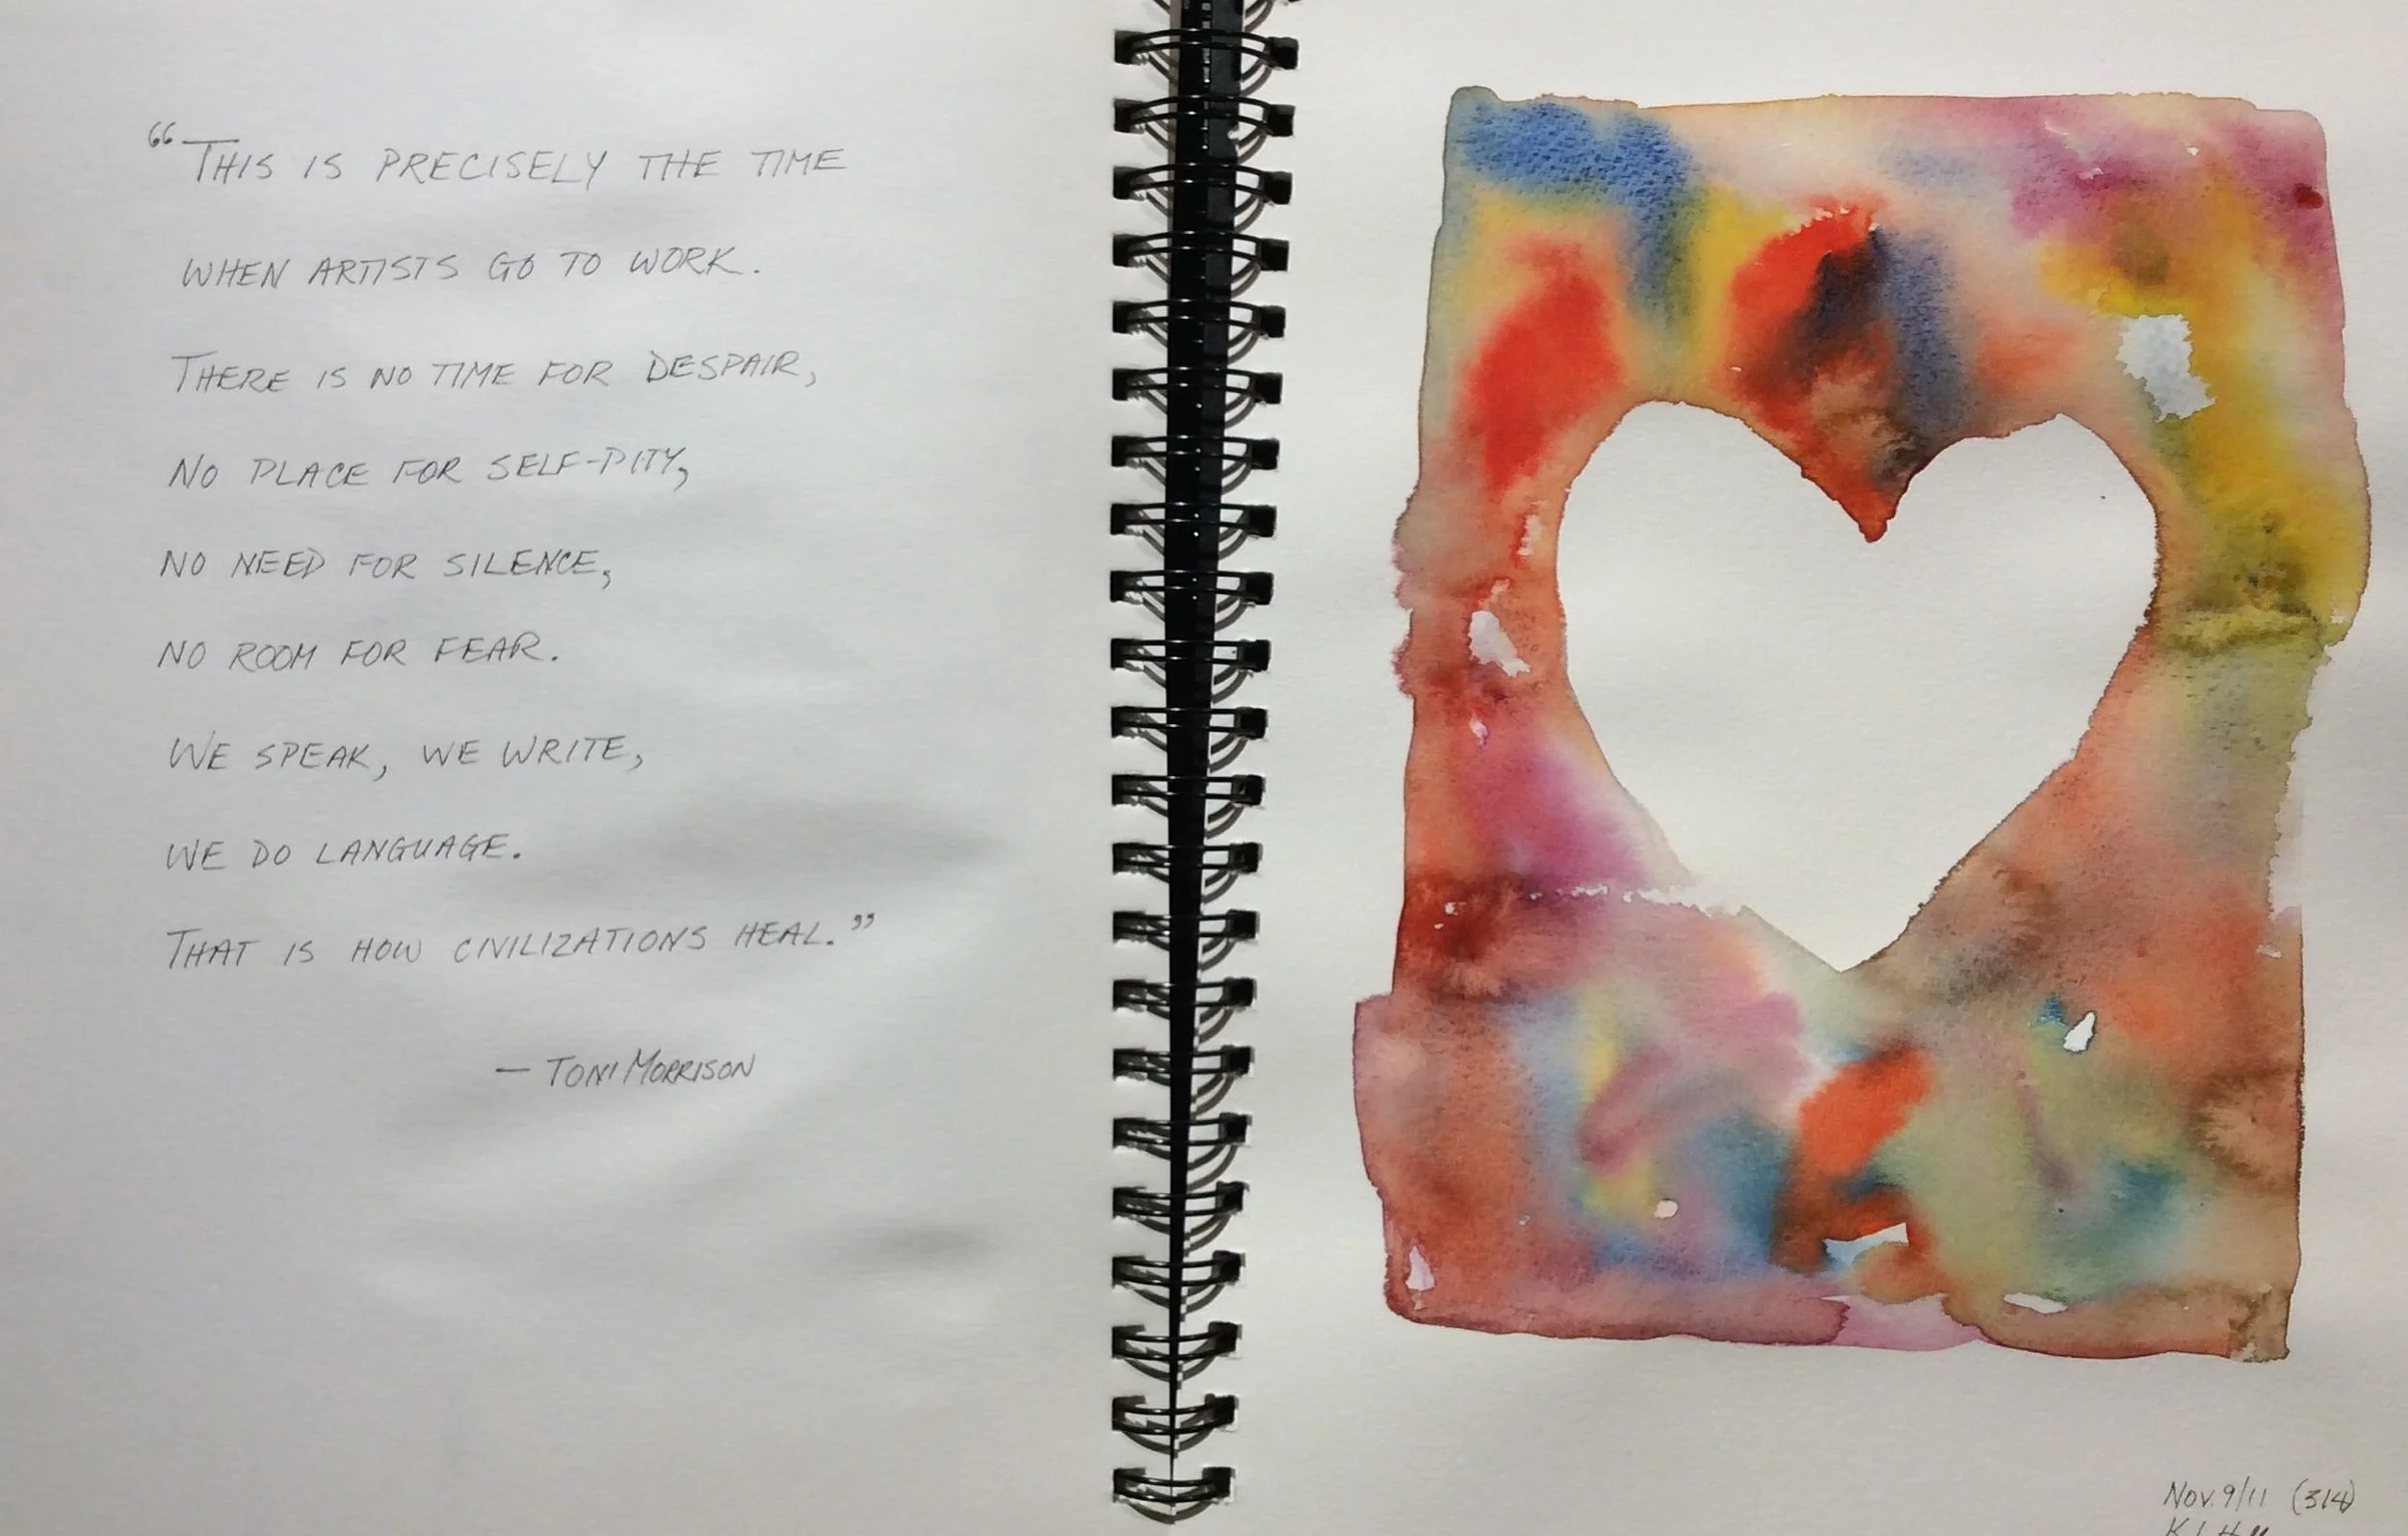 “THIS IS PRECISELY THE TIME
WHEN ARTISTS GO TO WORK.
THERE IS NO TIME FOR DESPAIR,
NO PLACE FOR SELF-PITY,
NO NEED FOR SILENCE,
NO ROOM FOR FEAR.
WE SPEAK, WE WRITE,
WE DO LANGUAGE.
THAT IS HOW CIVILIZATIONS HEAL.”
— TONI MORRISON
NOV. 9/11 (314)